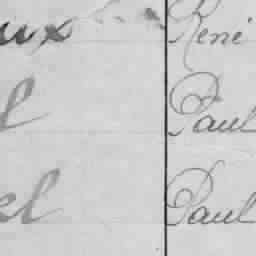 ux René
l Paul
el Paul